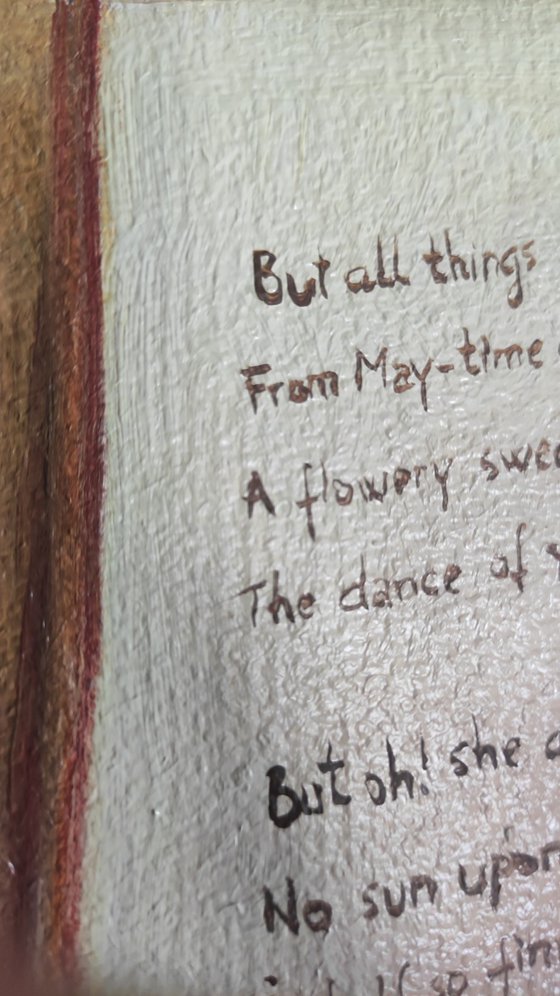 But all things
From May-time
A flowery swee
The dance of
But oh! she
No sun upon
half so fin